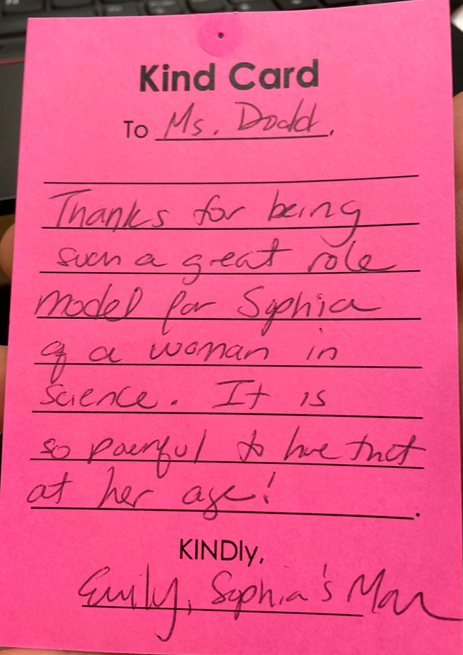 Kind Card
To Ms. Dodd,
Thanks for being
such a great role
model for Sophia
of a woman in
science. It is
so powerful to have that
at her age!
.
KINDly,
Emily, Sophia's Mom